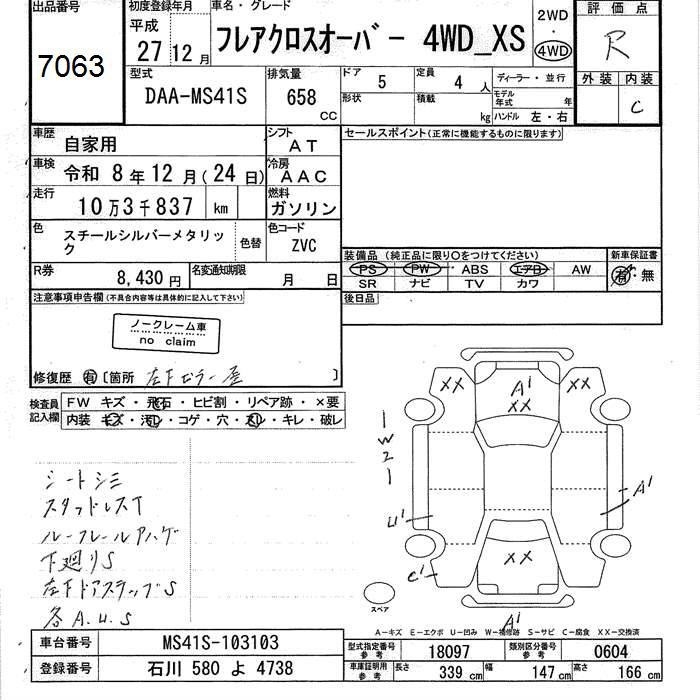 出品番号
7063
初度登録年月
平成
27 12月
車名・グレード
フレアクロスオーバー 4WD_XS
2WD
・
4WD
評価点
R
型式
DAA-MS41S
排気量
658
CC
ドア
5
定員
4 人
形状
積載
kg
ディーラー・並行
モデル
年式
年
ハンドル 左・右
外装
内装
C
車歴
自家用
シフト
AT
セールスポイント(正常に機能するものに限ります)
車検
令和 8年12月(24日)
冷房
AAC
走行
10万3千837 km
燃料
ガソリン
色
スチールシルバーメタリッ
ク
色替
色コード
ZVC
装備品 (純正品に限り○をつけてください)
新車保証書
PS ・ PW ・ ABS エアB AW
有・無
SR ナビ TV カワ
R券
8,430円
名変通知期限
月 日
後日品
注意事項申告欄(不具合内容等は具体的に記入して下さい)
ノークレーム車
no claim
修復歴 有 〔箇所 左下ピラー 〕
検査員
記入欄
FW キズ・飛石・ヒビ割・リペア跡・×要
内装 キズ・汚レ・コゲ・穴・スレ・キレ・破レ
シートシミ
スタッドレスT
ルーフレールアハゲ
下廻りS
左下ドアステップS
各A.U.S
XX
A1
XX
XX
1
W
2
1
U1
A1
XX
C1
スペア
A1
A―キズ E―エクボ U―凹み W―補修跡 S―サビ C―腐食 XX―交換済
車台番号
MS41S-103103
型式指定番号
参考
18097
類別区分番号
参考
0604
登録番号
石川 580 よ 4738
車庫証明用
参考
長さ
339 cm
幅
147 cm
高さ
166 cm